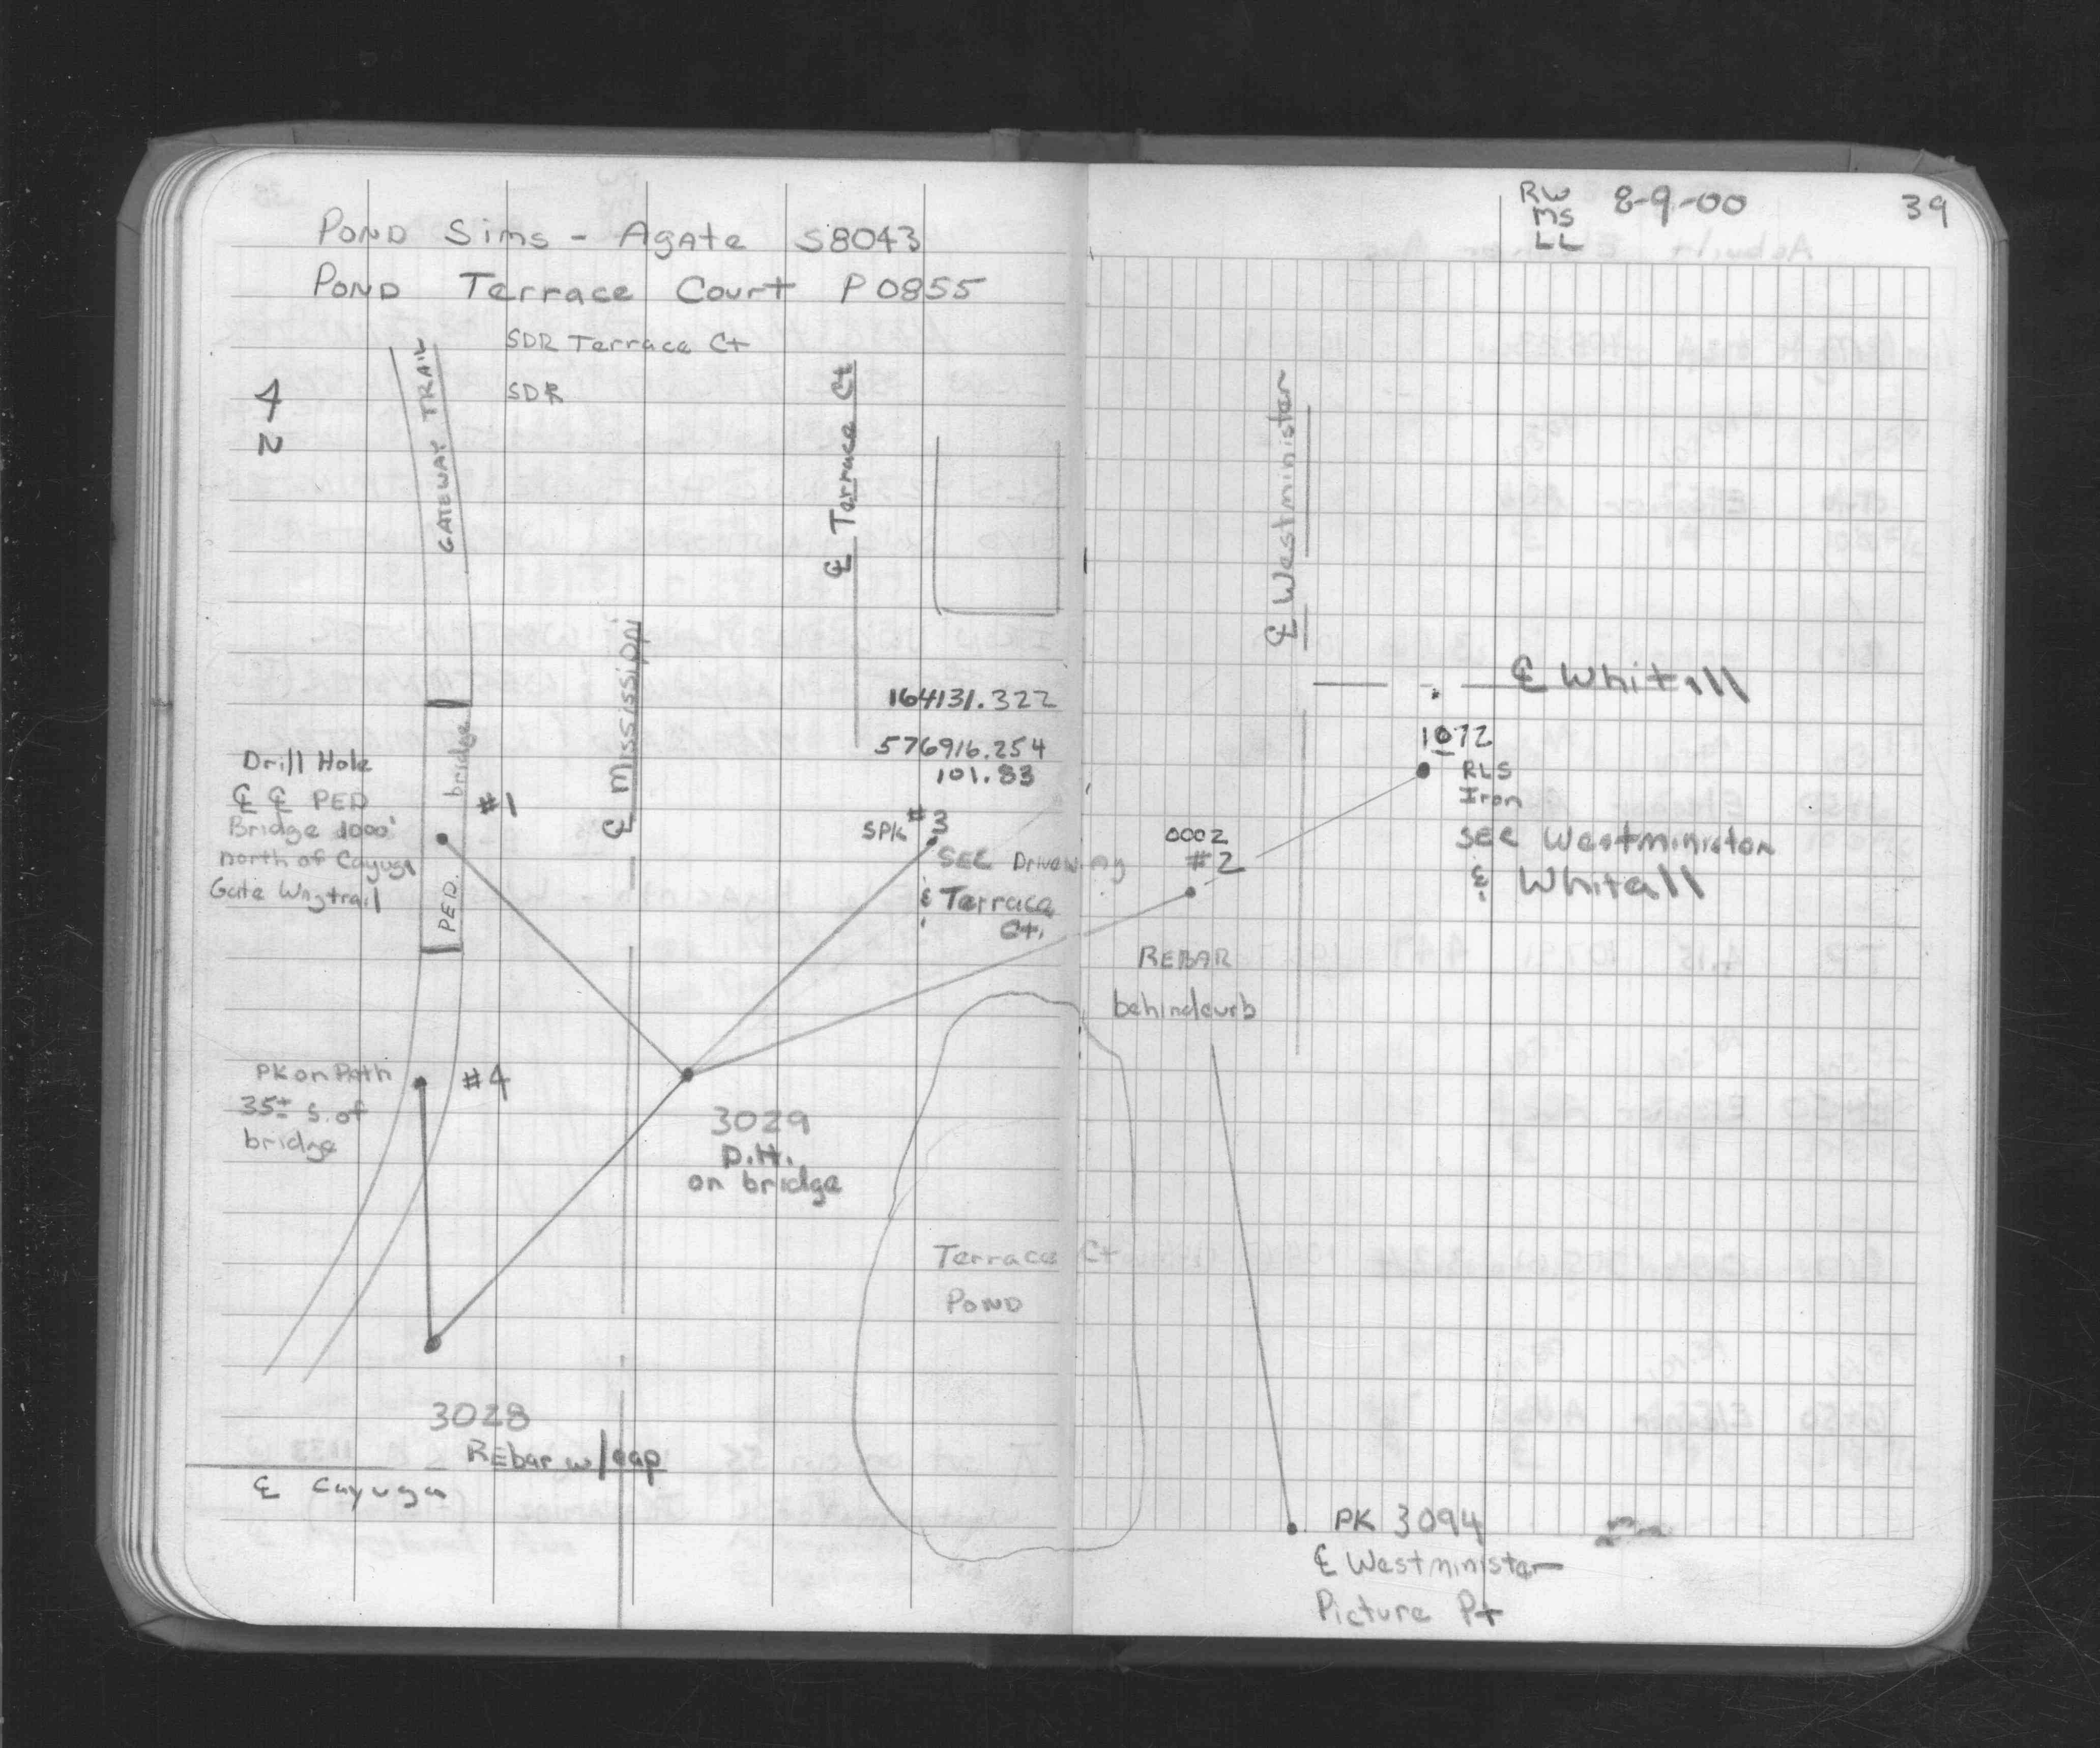 POND Sims - Agate S8043
POND Terrace Court P0855
SDR Terrace Ct
SDR
N
GATEWAY TRAIL
℄ Terrace Ct
℄ Mississippi
164131.322
576916.254
101.83
Drill Hole
℄ ℄ PED
Bridge 1000'
north of Cayuga
Gate Waytrail
PED. bridge
#1
SPK #3
SEE Driveway
& Terrace
Ct.
PK on Path
35± S. of
bridge
#4
3029
D.H.
on bridge
Terrace Ct
POND
3028
REbar w/cap
℄ Cayuga
RW
MS
LL
8-9-00
39
℄ Westminister
℄ Whitall
1072
RLS
Iron
see Westminister
& Whitall
0002
#2
REBAR
behind curb
PK 3094
℄ Westminister
Picture Pt